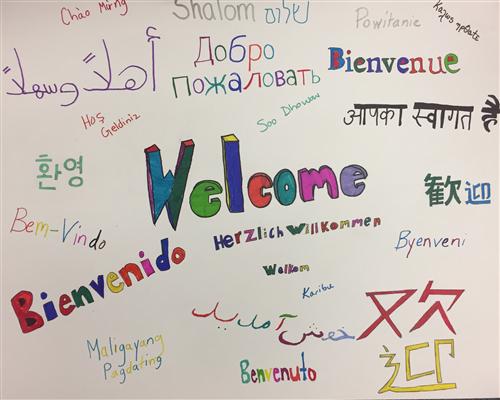 Chào Mừng
Shalom שלום
Powitanie
Καλώς ηρθατε
أهلاً وسهلاً
Добро
пожаловать
Bienvenue
Hoş
Geldiniz
Soo Dhowow
आपका स्वागत है
환영
Welcome
歡迎
Bem-Vindo
Herzlich Willkommen
Byenveni
Bienvenido
Welkom
Karibu
خوش آمدید
欢
迎
Maligayang
Pagdating
Benvenuto